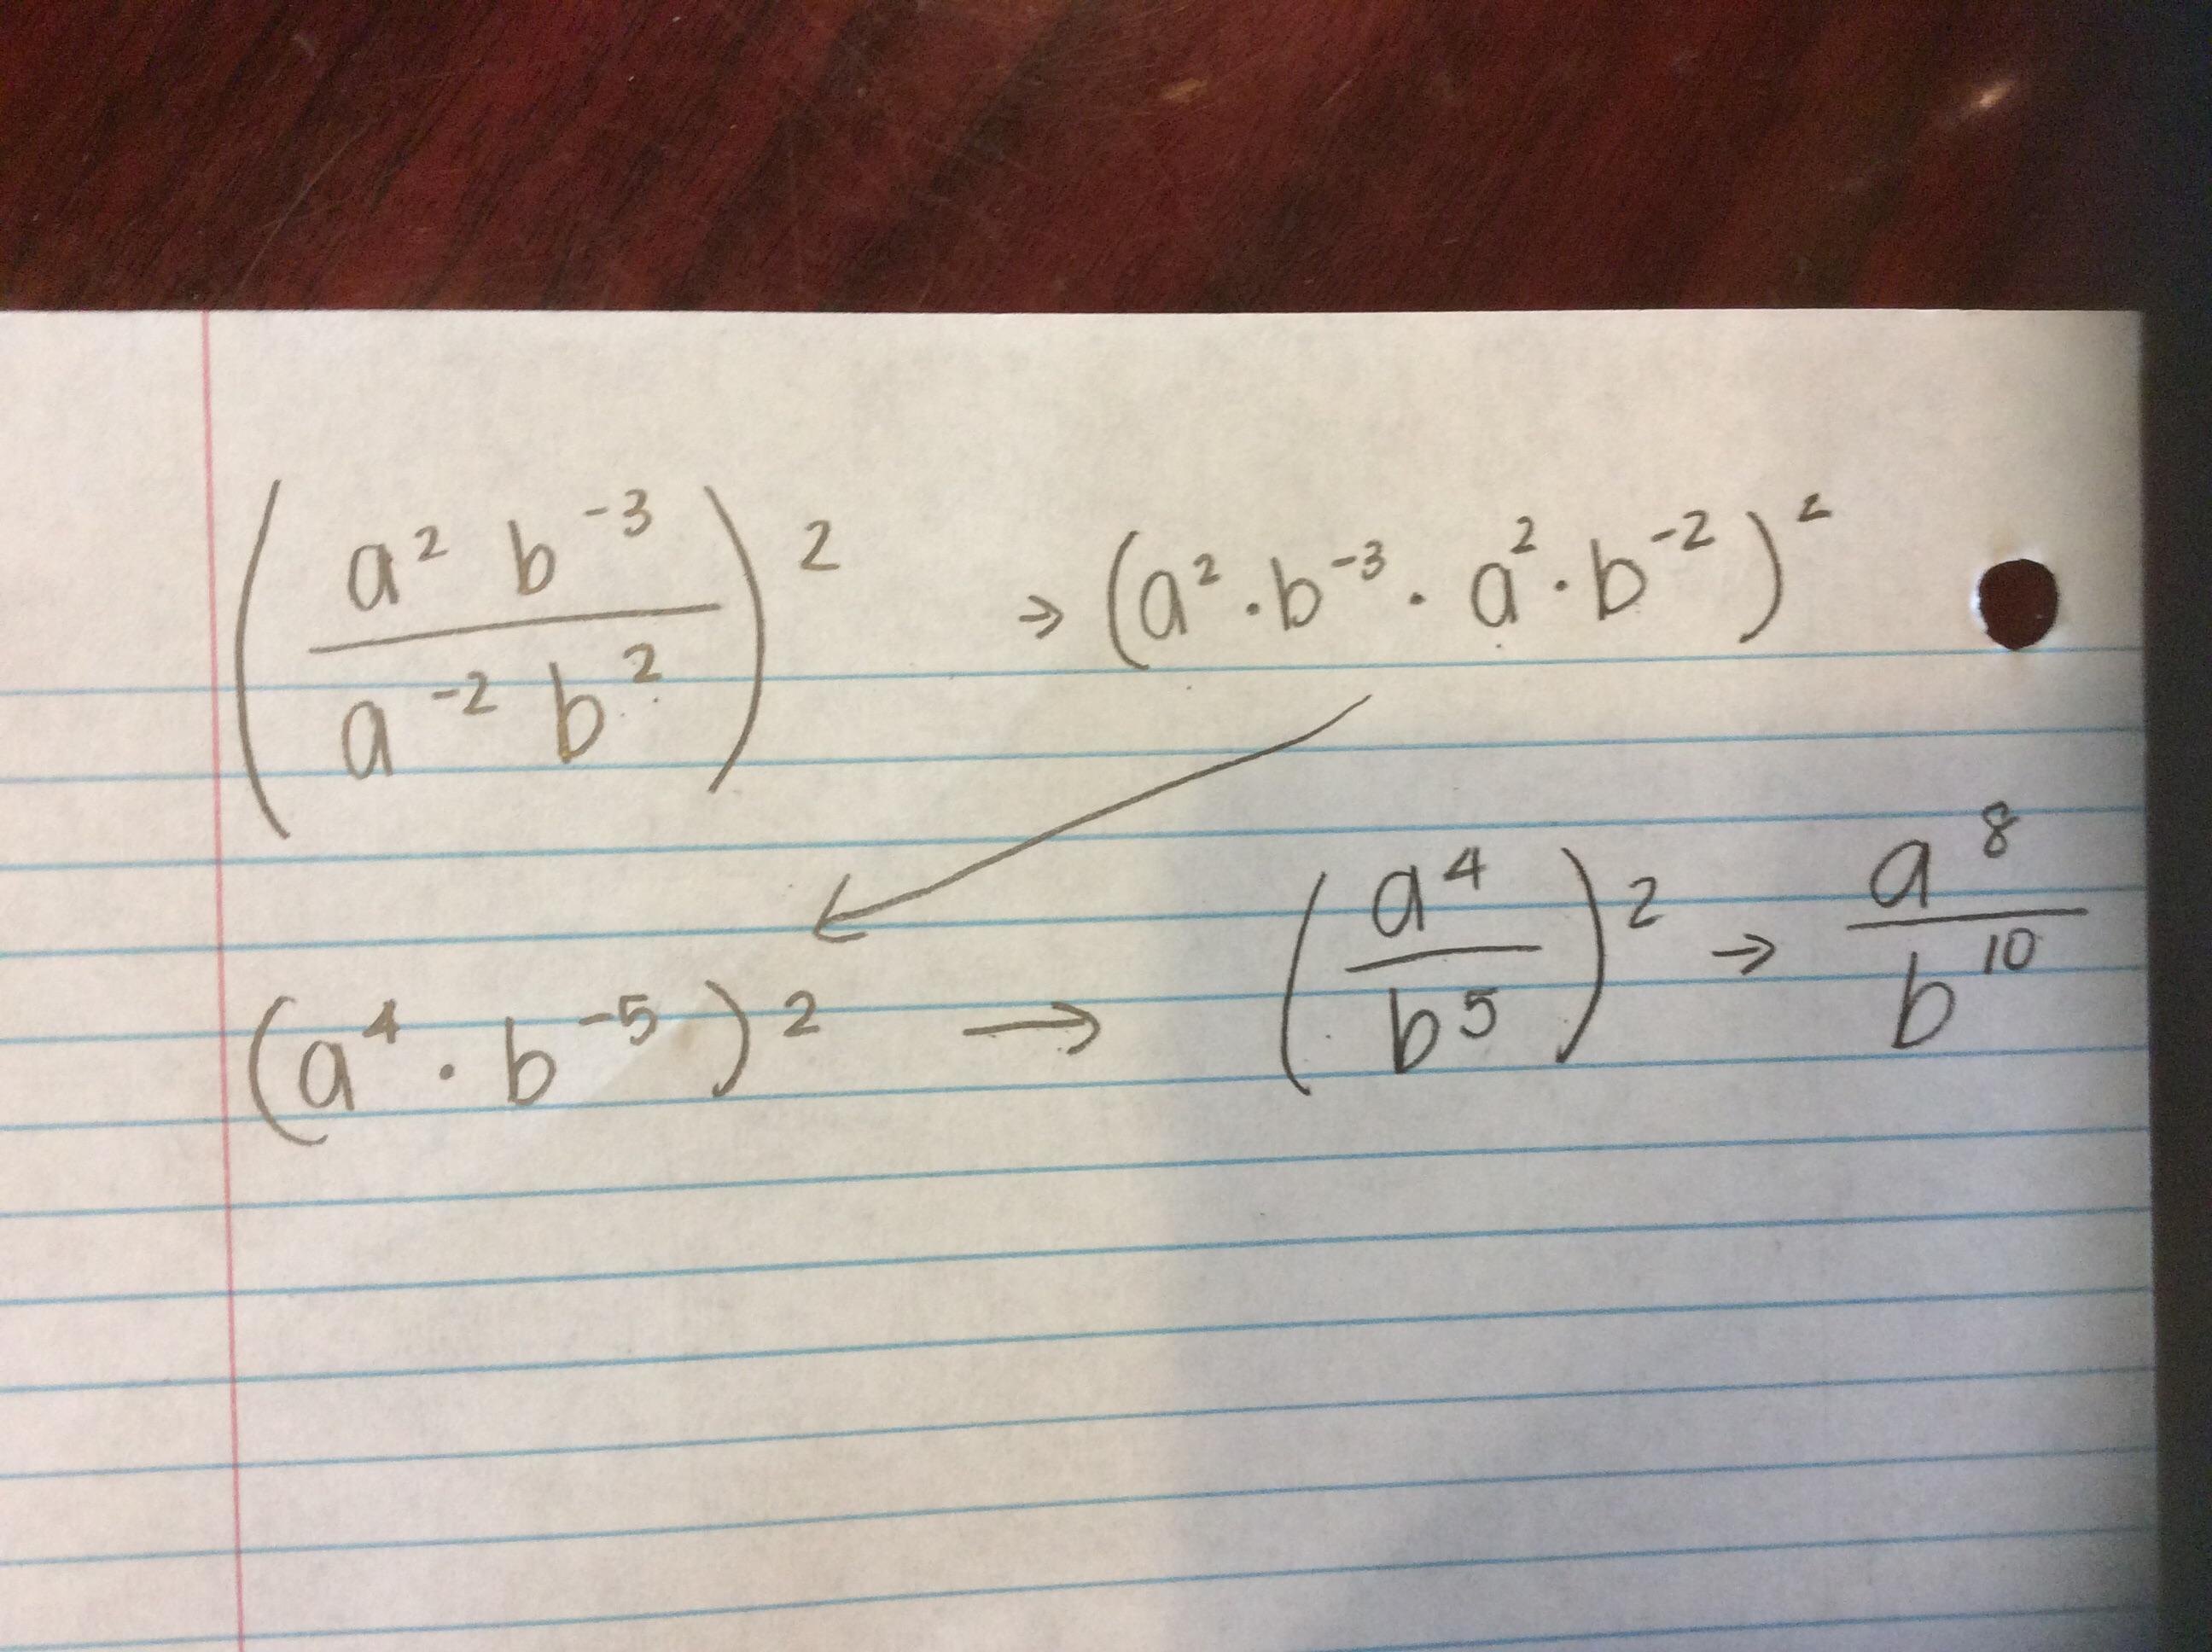 (a² b⁻³ / a⁻² b²)² → (a² · b⁻³ · a² · b⁻²)²
(a⁴ · b⁻⁵)² → (a⁴ / b⁵)² → a⁸ / b¹⁰